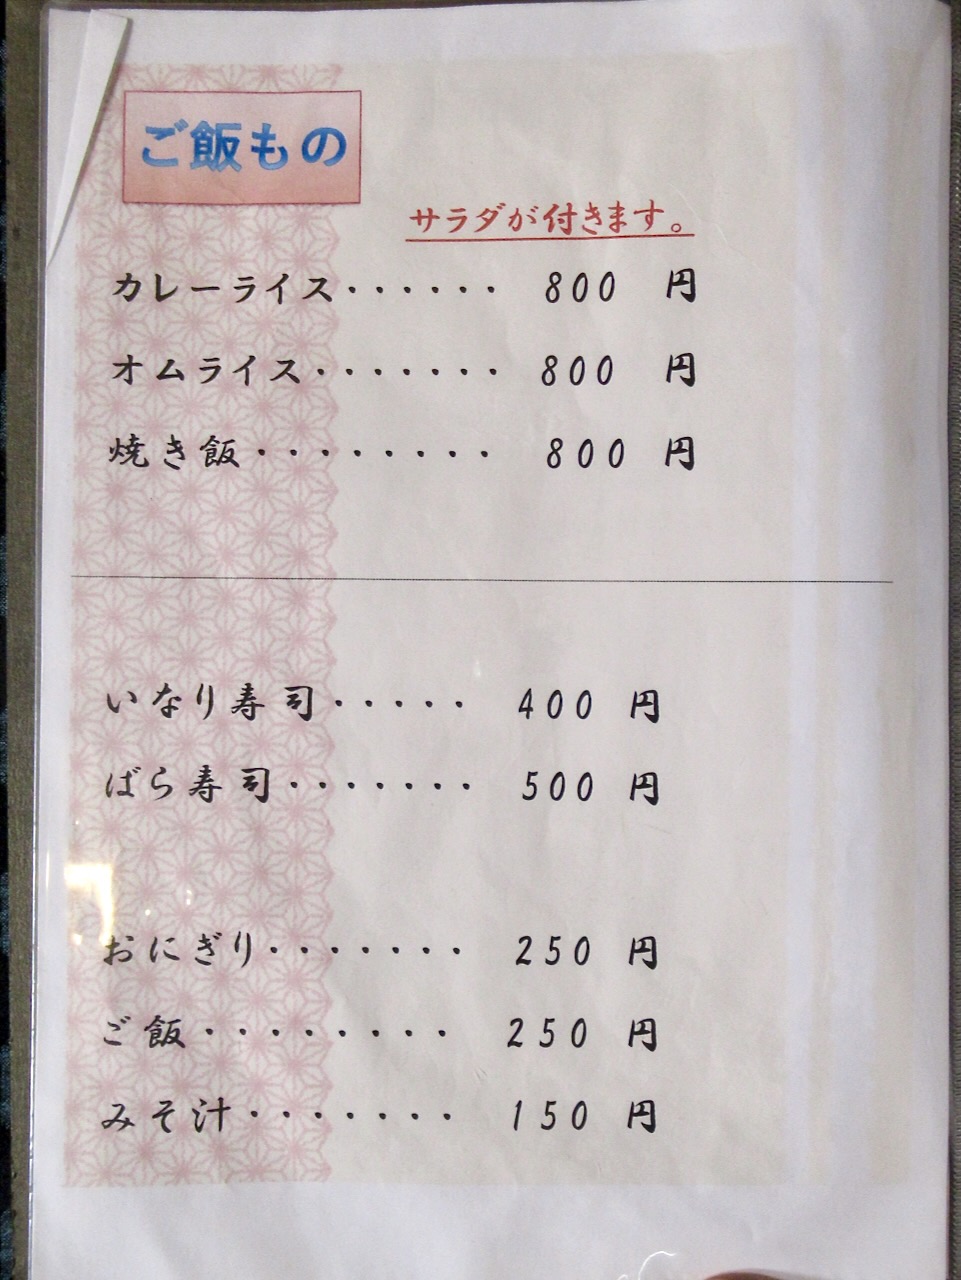 ご飯もの
サラダが付きます。
カレーライス・・・・・・ 800 円
オムライス・・・・・・・ 800 円
焼き飯・・・・・・・・ 800 円
いなり寿司・・・・・ 400 円
ばら寿司・・・・・・・ 500 円
おにぎり・・・・・・・ 250 円
ご飯・・・・・・・・ 250 円
みそ汁・・・・・・・ 150 円